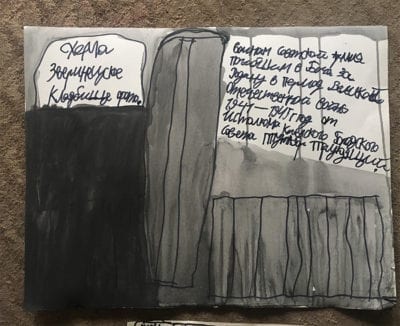 Зверинецкое
Кладбище
Воинам Советской Армии
погибшим в боях за
Родину в период Великой
Отечественной войны
1941—1945 год от
Исполкома Киевского Городского
Совета Трудящих